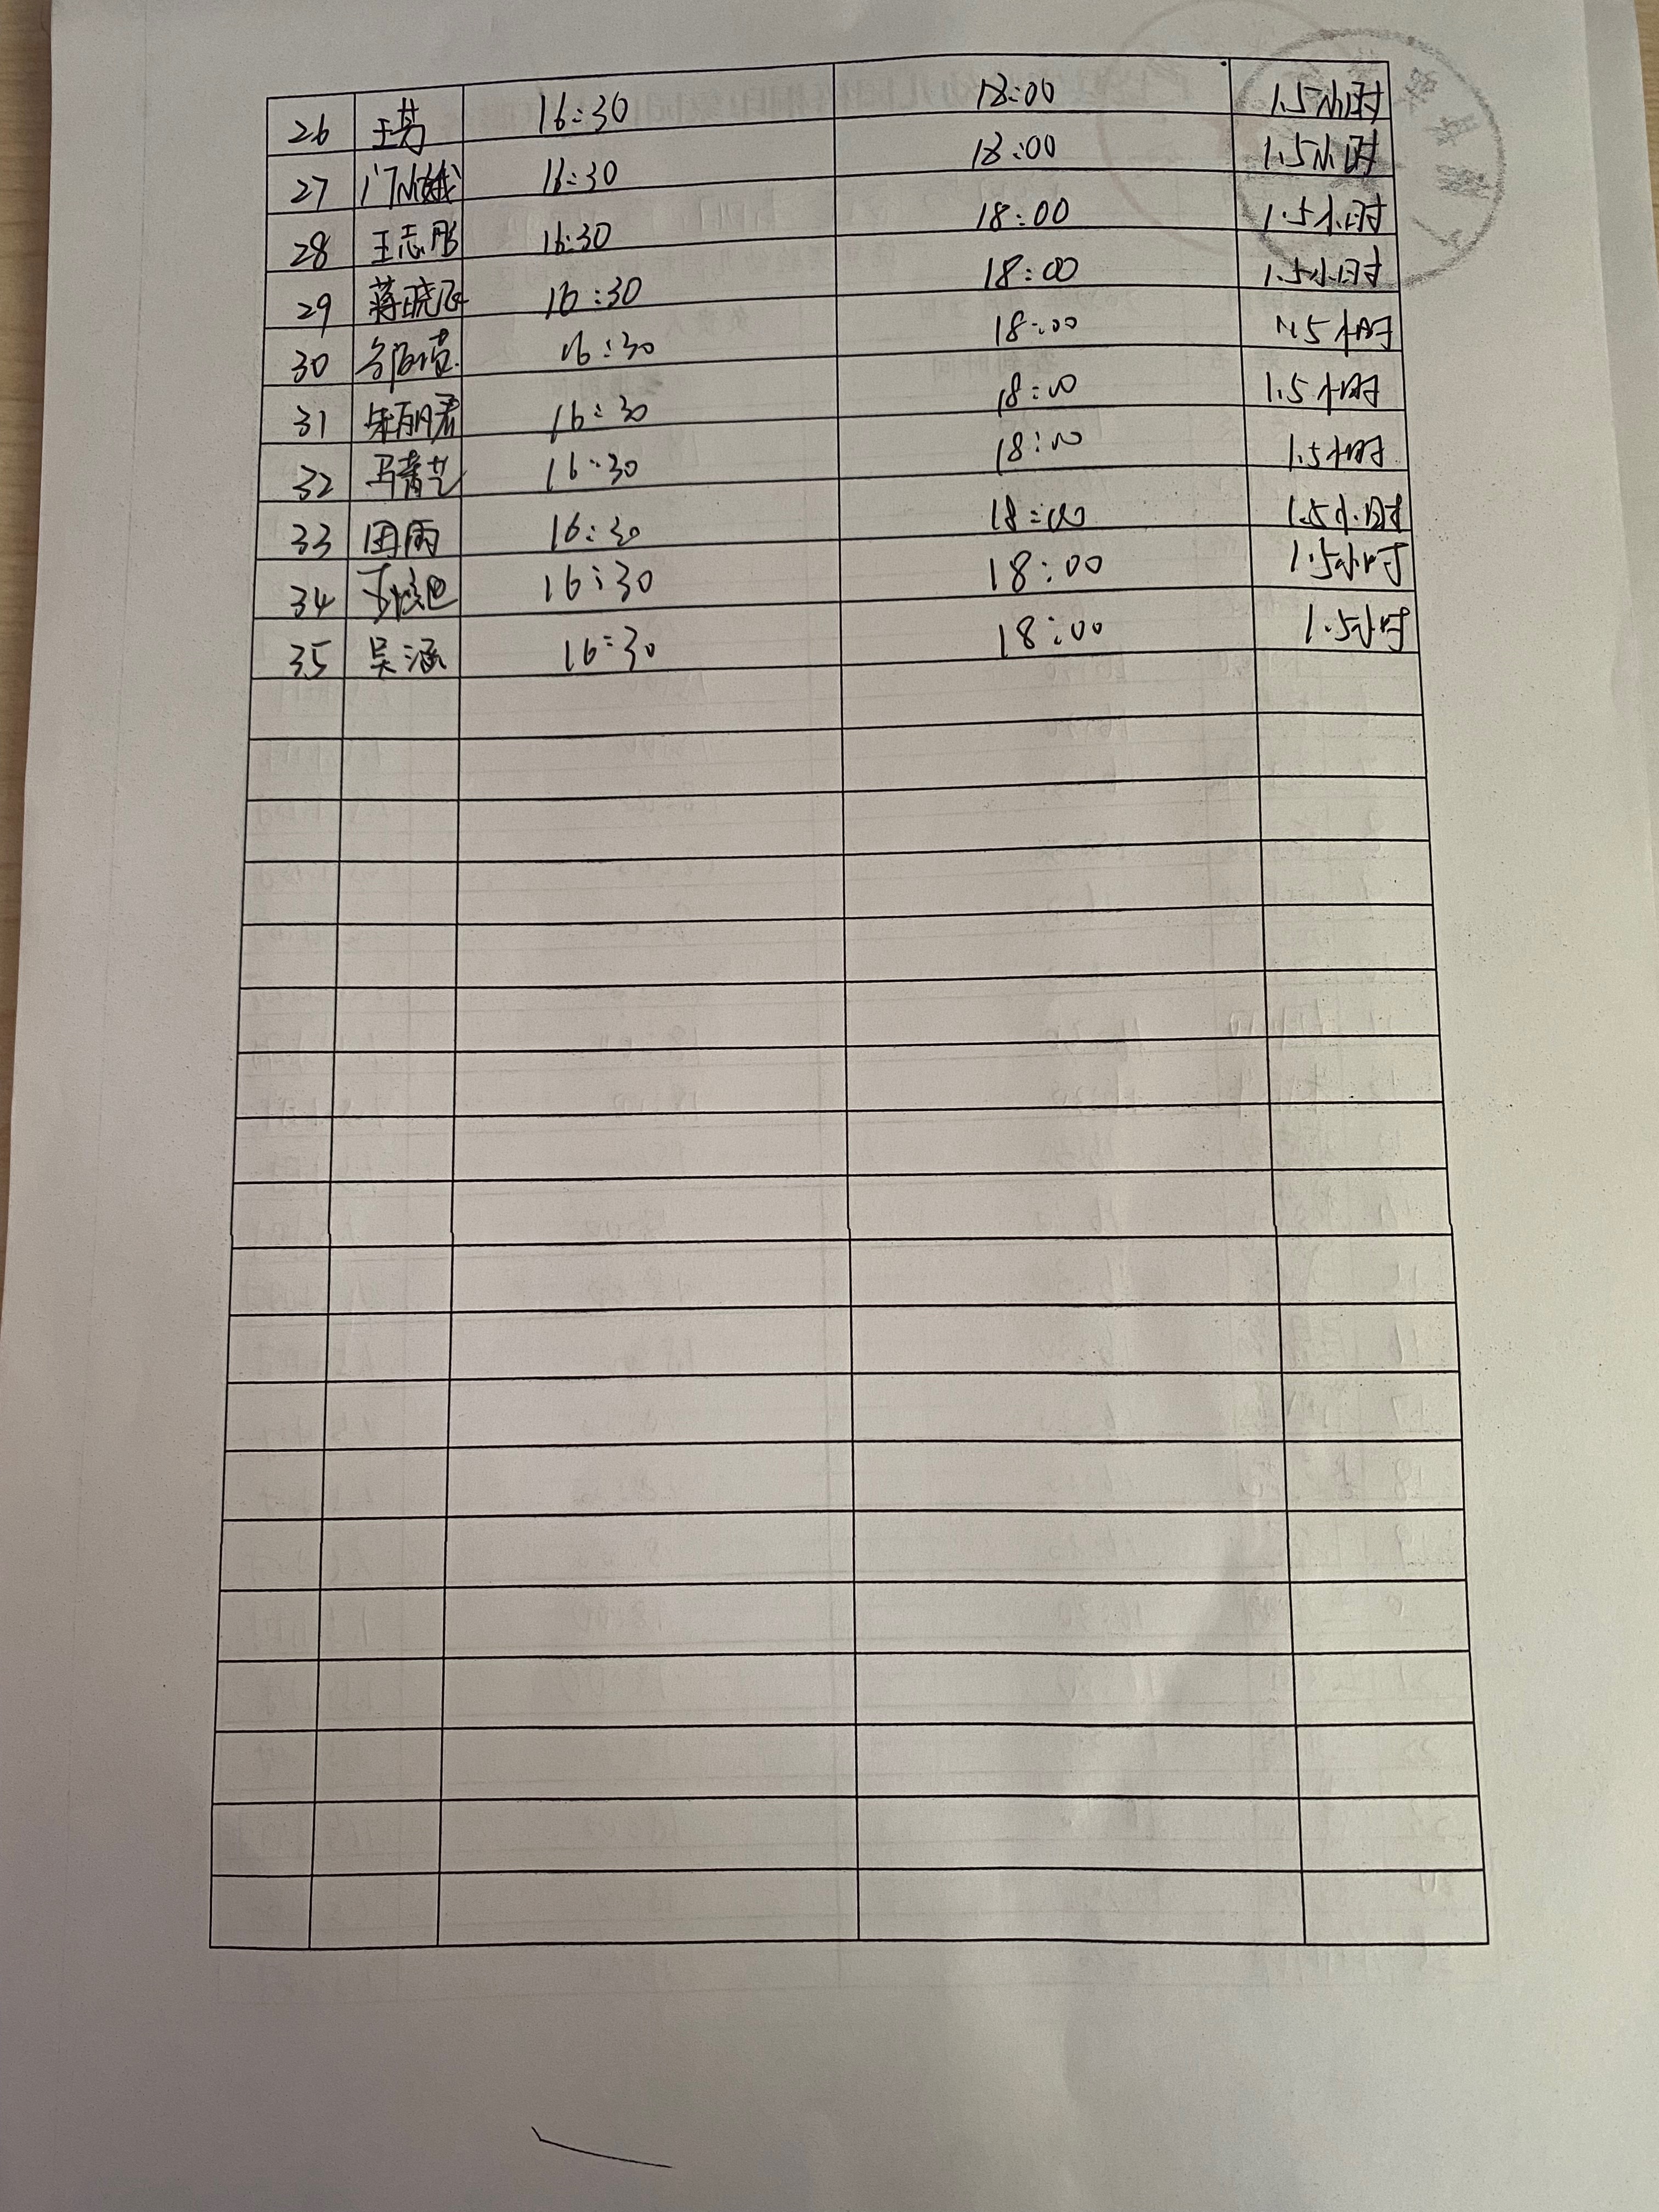 26 王芳 16:30 18:00 1.5小时
27 门小娥 16:30 18:00 1.5小时
28 王志彤 16:30 18:00 1.5小时
29 蒋晓 16:30 18:00 1.5小时
30 16:30 18:00 1.5小时
31 朱丽君 16:30 18:00 1.5小时
32 马菁艺 16:30 18:00 1.5小时
33 田雨 16:30 18:00 1.5小时
34 16:30 18:00 1.5小时
35 吴涵 16:30 18:00 1.5小时